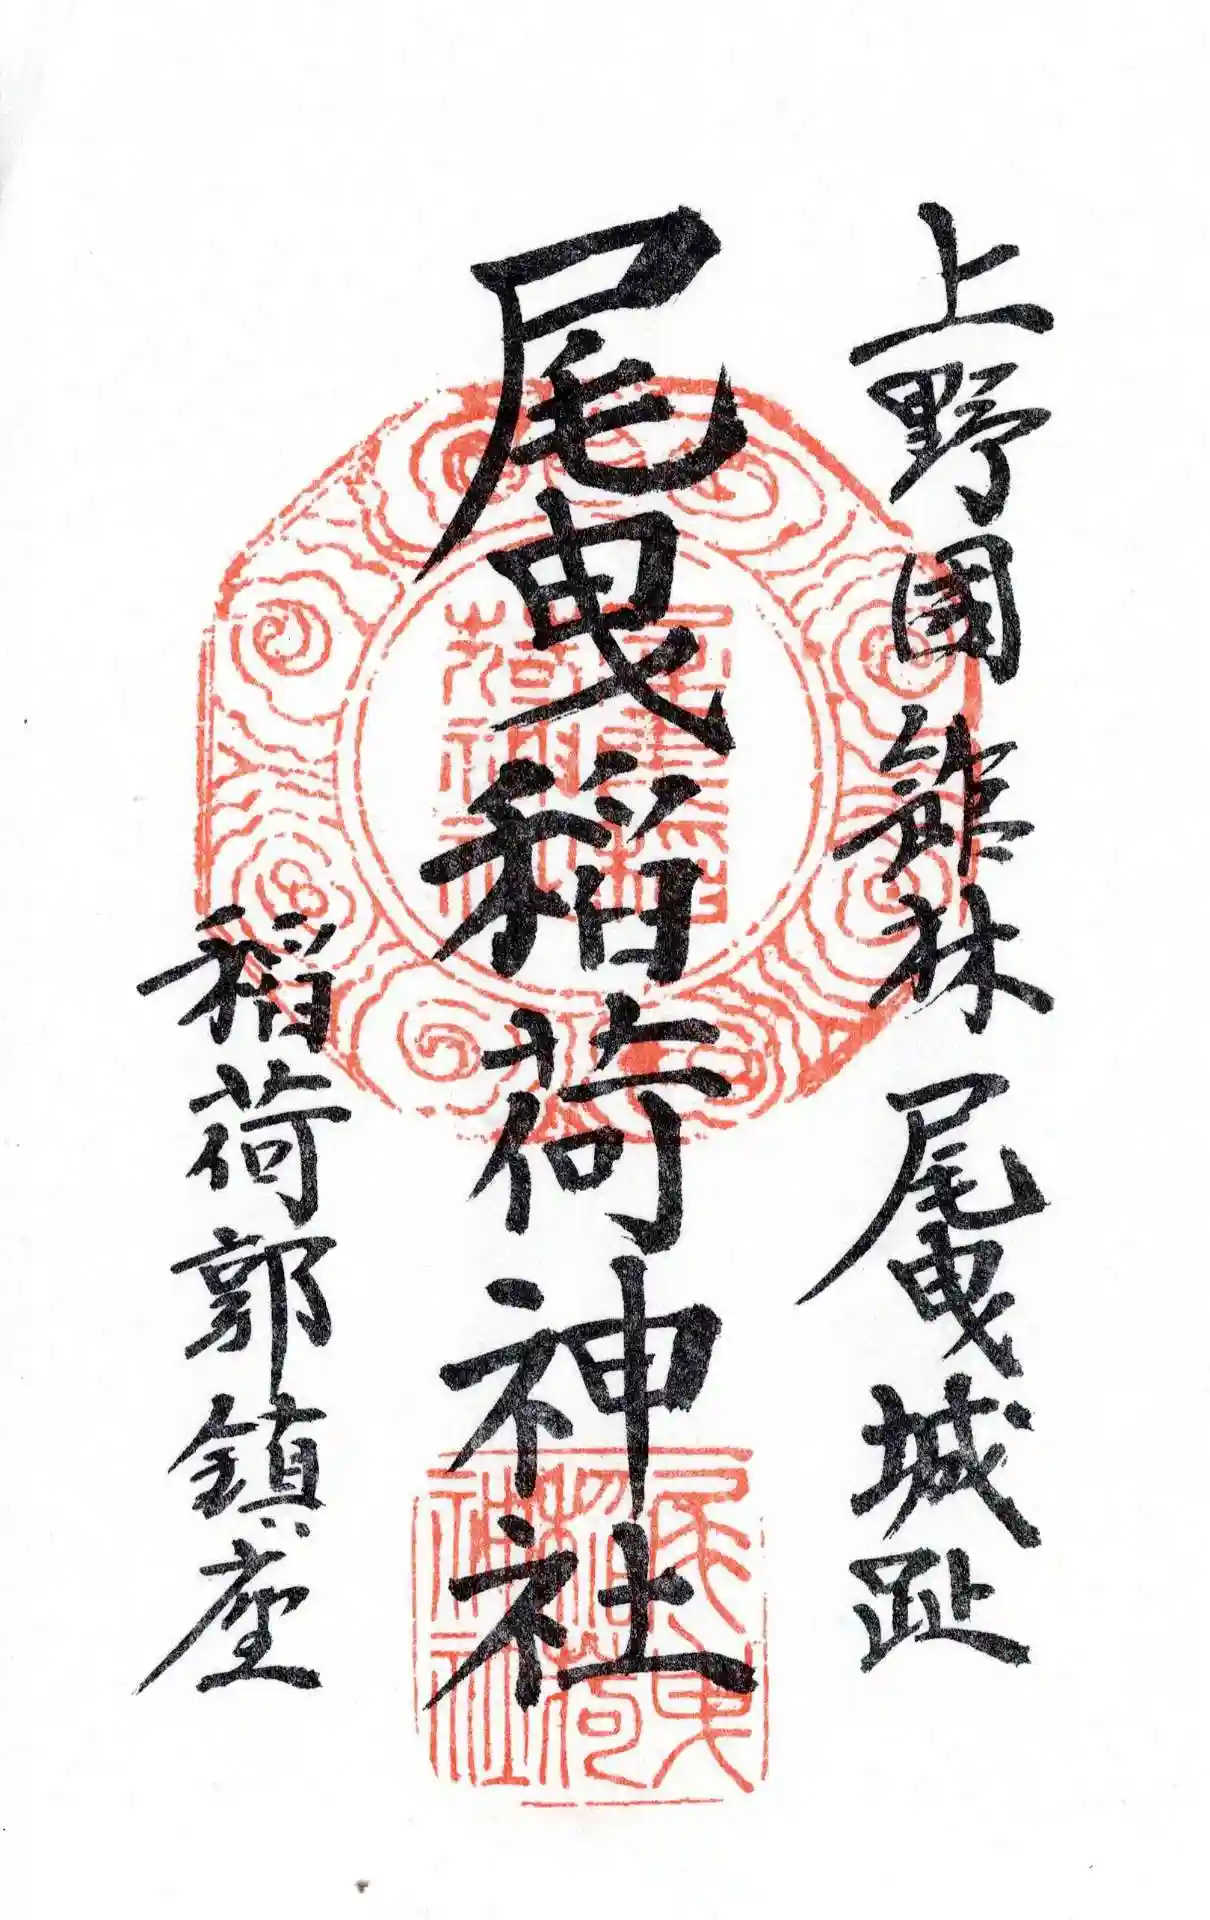 上野国館林 尾曳城趾
尾曳稲荷神社
稲荷郭鎮座
尾曳
稲荷
神社